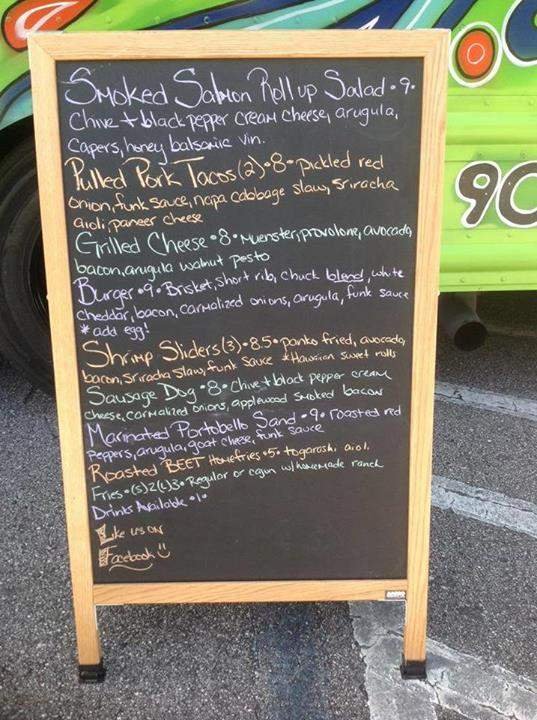 Smoked Salmon Roll up Salad • 9 •
Chive + black pepper cream cheese, arugula,
capers, honey balsamic vin.
Pulled Pork Tacos (2) • 8 • pickled red
onion, funk sauce, napa cabbage slaw, sriracha
aioli, paneer cheese
Grilled Cheese • 8 • Muenster, provolone, avocado,
bacon, arugula walnut pesto
Burger • 9 • Brisket, short rib, chuck blend, white
cheddar, bacon, carmalized onions, arugula, funk sauce
* add egg!
Shrimp Sliders (3) • 8.5 • panko fried, avocado,
bacon, sriracha slaw, funk sauce * Hawaiian sweet rolls
Sausage Dog • 8 • Chive + black pepper cream
cheese, carmalized onions, applewood smoked bacon
Marinated Portobello Sand • 9 • roasted red
peppers, arugula, goat cheese, funk sauce
Roasted BEET Homefries • 5 • togarashi aioli
Fries • (s) 2 (L) 3 • Regular or cajun w/ homemade ranch
Drinks Available • 1 •
Like us on
Facebook
90